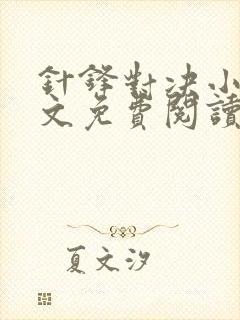 針鋒對决小
文免費閱讀
夏文汐